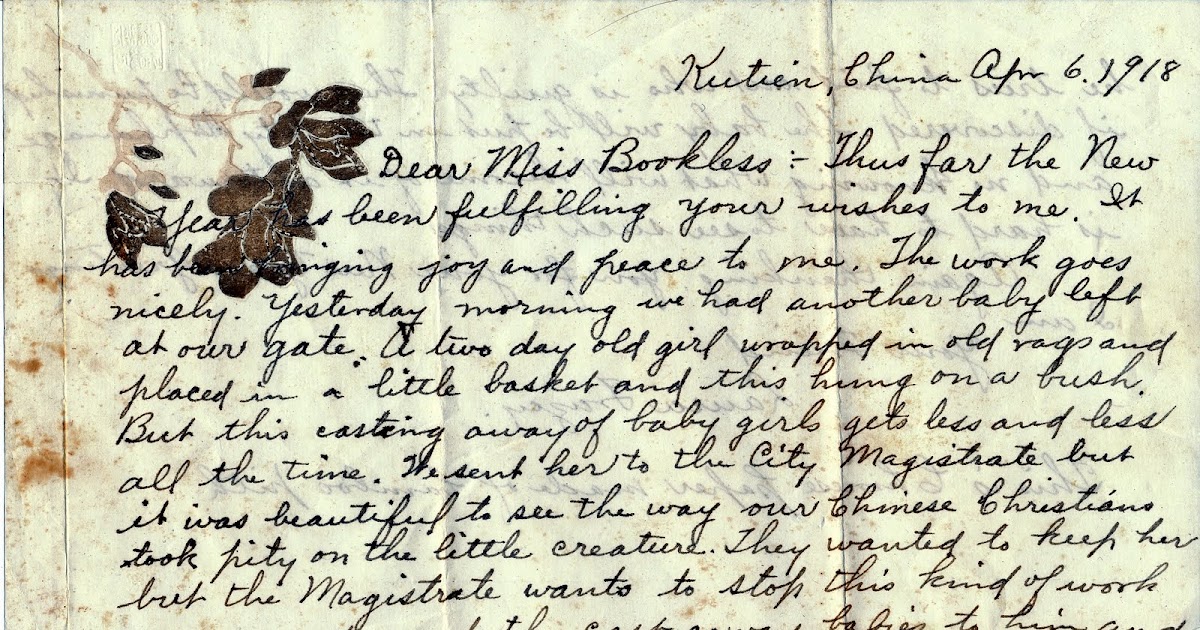 Kutien, China Apr 6. 1918
Dear Miss Bookless:- Thus far the New
Year has been fulfilling your wishes to me. It
has been bringing joy and peace to me. The work goes
nicely. Yesterday morning we had another baby left
at our gate. A two day old girl wrapped in old rags and
placed in a little basket and this hung on a bush.
But this casting away of baby girls gets less and less
all the time. We sent her to the City Magistrate but
it was beautiful to see the way our Chinese Christians
took pity on the little creature. They wanted to keep her
but the Magistrate wants to stop this kind of work
babies to him and